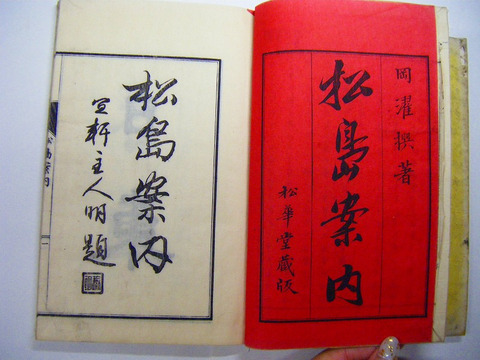 岡濯撰著
松島案内
松華堂蔵版
松島案内
主人明題
松島案内